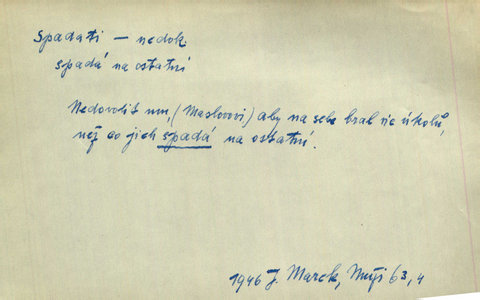 Spadati — nedok.
spadá na ostatní
Nedovolit mu, (Maslovovi) aby na sebe bral víc úkolů,
než co jich spadá na ostatní.
1946 J. Marek, Muži 63,4